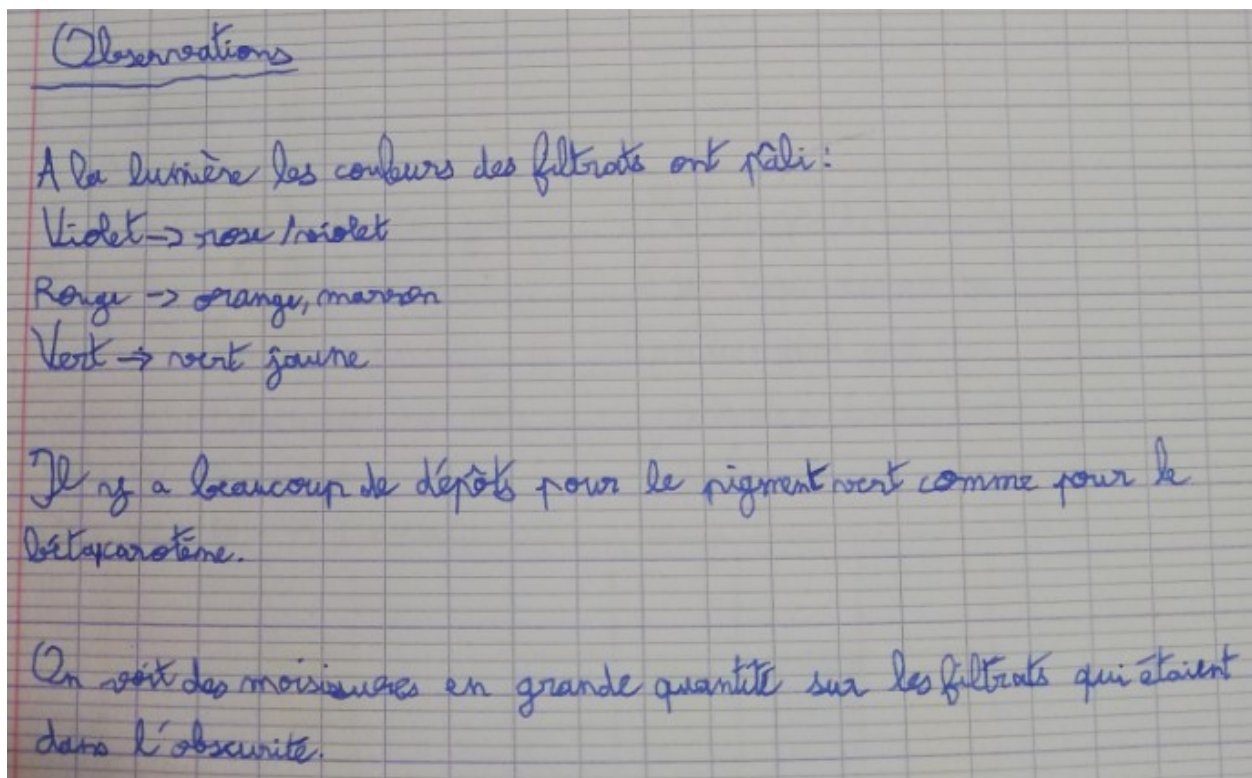 Observations
A la lumière les couleurs des filtrats ont pâli :
Violet → rose / violet
Rouge → orange, marron
Vert → vert jaune
Il y a beaucoup de dépôts pour le pigment vert comme pour le
bétacarotène.
On voit des moisissures en grande quantité sur les filtrats qui étaient
dans l'obscurité.